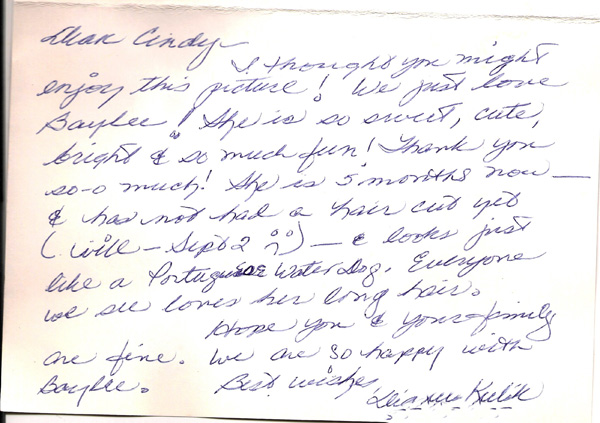 Dear Cindy-
I thought you might
enjoy this picture! We just love
Baylee! She is so sweet, cute,
bright & so much fun! Thank you
so-o much! She is 5 months now—
& has not had a hair cut yet
(will - Sept 2 ) - & looks just
like a Portuguese Water Dog. Everyone
we see loves her long hair.
Hope you & your family
are fine. We are so happy with
Baylee. Best wishes,
Dianne Kulik